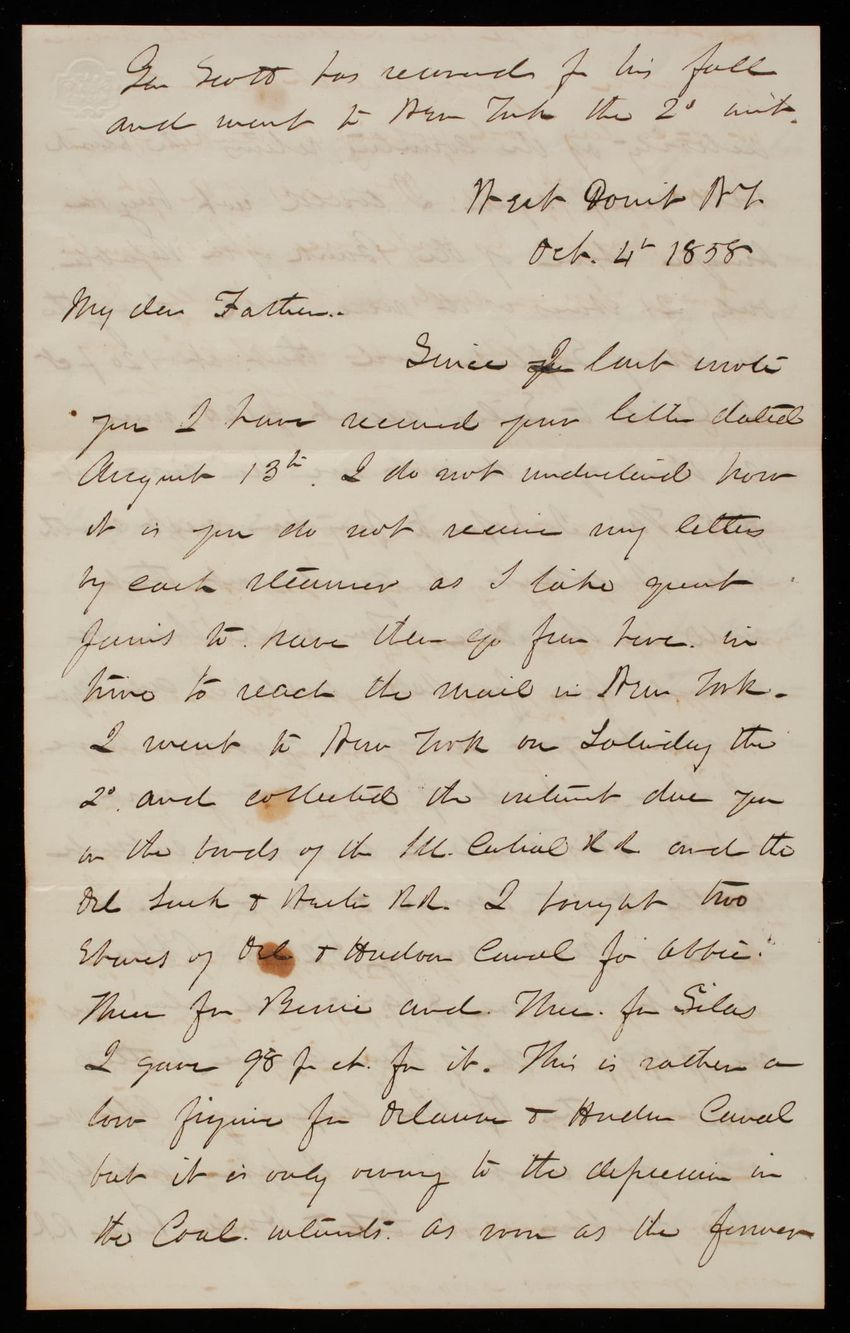 Gen Scott has recovered fr his fall
and went to New York the 2d inst.
West Point N Y
Oct. 4th 1858
My dear Father..
Since I last wrote
you I have received your letter dated
August 13th. I do not understand how
it is you do not receive my letters
by each steamer as I take great
pains to have them go from here in
time to reach the mail in New York.
I went to New York on Saturday the
2d. and collected the interest due you
on the bonds of the Ill. Central R R and the
Del Lack & Western RR. I bought two
Shares of Del & Hudson Canal for Abbie.
Three for Bessie and Three for Silas
I gave 98 pr ct. for it. This is rather a
low figure for Delaware & Hudson Canal
but it is only owing to the depression in
the Coal interests. As soon as the